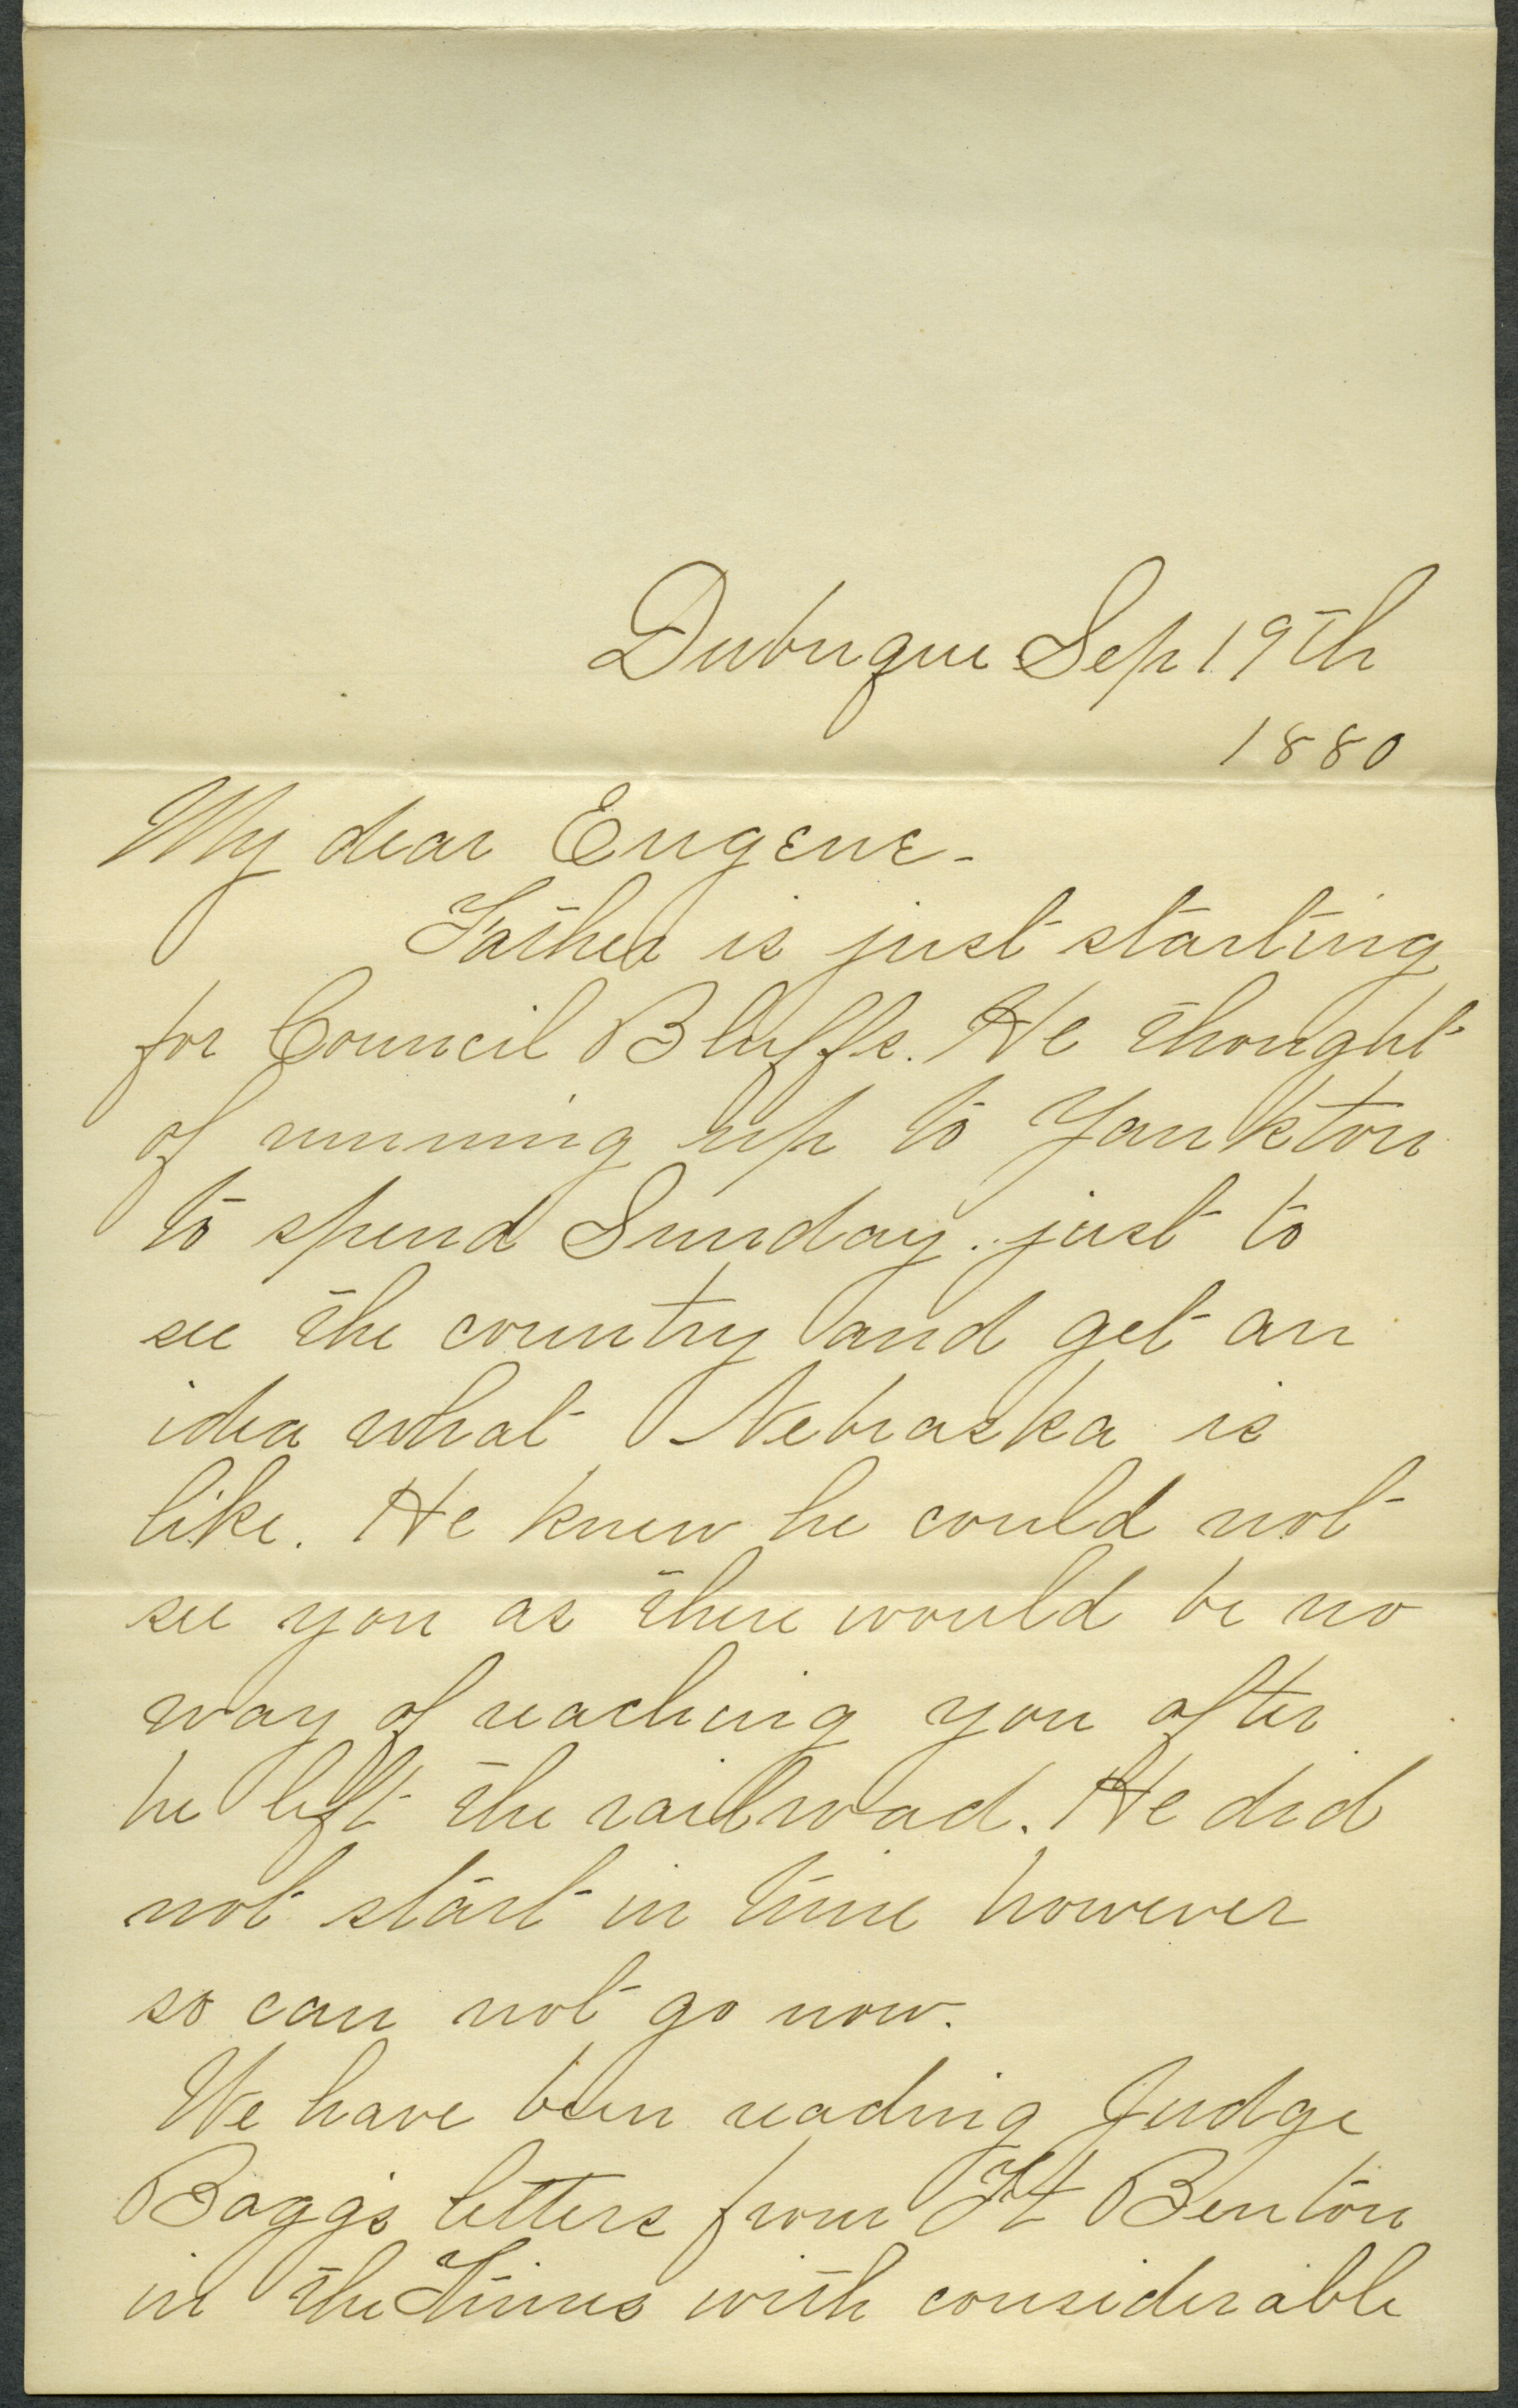 Dubuque Sep 19th
1880
My dear Eugene -
Father is just starting
for Council Bluffs. He thought
of running up to Yankton
to spend Sunday. just to
see the country and get an
idea what Nebraska is
like. He knew he could not
see you as there would be no
way of reaching you after
he left the railroad. He did
not start in time however
so can not go now.
We have been reading Judge
Bagg's letters from Ft Benton
in the Times with considerable